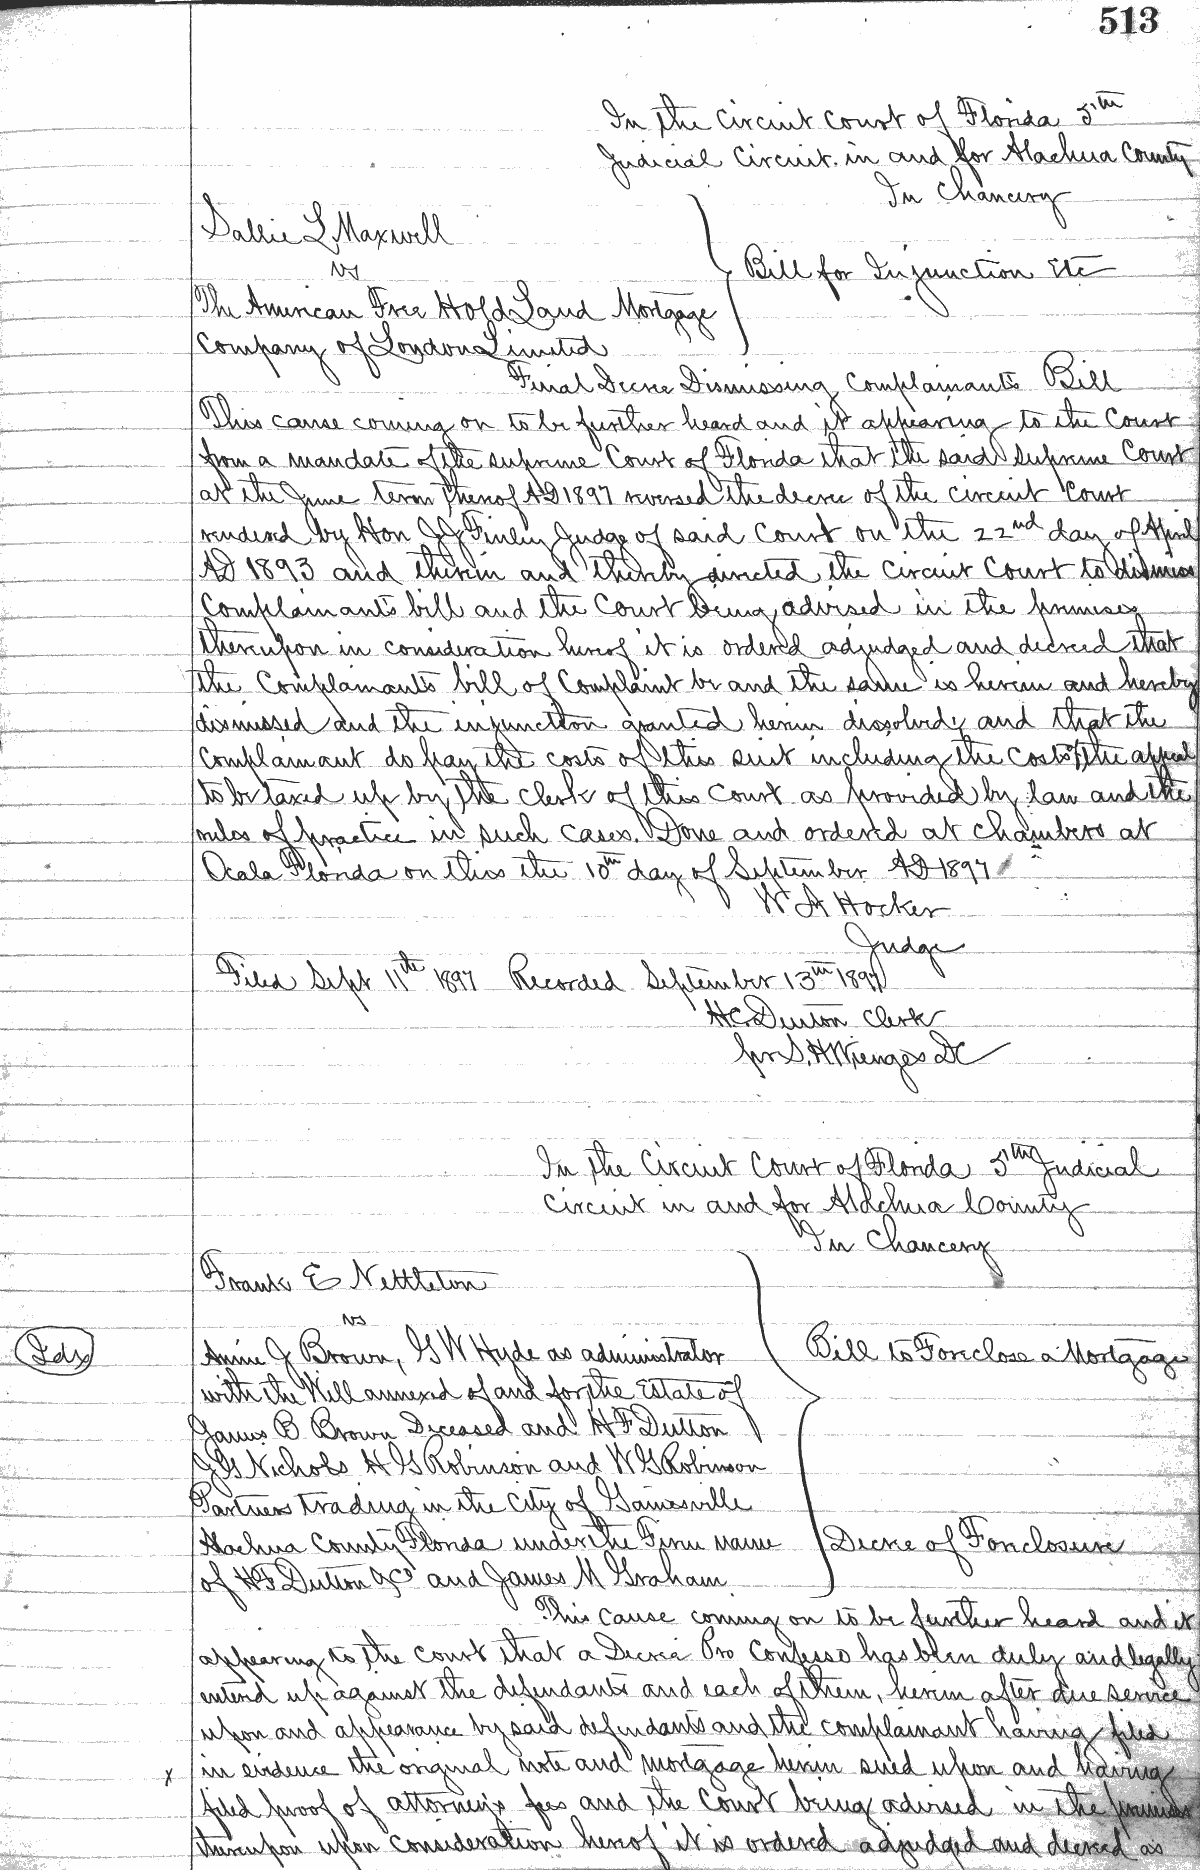 513
In the Circuit Court of Florida 5th
Judicial Circuit. in and for Alachua County
In Chancery
Sallie L Maxwell
vs
Bill for Injunction Etc
The American Free Hold Land Mortgage
Company of London Limited
Final Decree Dismissing Complainants Bill
This cause coming on to be further heard and it appearing to the Court
from a mandate of the supreme Court of Florida that the said Supreme Court
at the June term thereof AD 1897 reversed the decree of the circuit Court
rendered by Hon J J Finley Judge of said Court on the 22nd day of April
AD 1893 and therein and thereby directed the Circuit Court to dismiss
Complainants bill and the Court being advised in the premises
thereupon in consideration hereof it is ordered adjudged and decreed that
the Complainants bill of Complaint be and the same is herein and hereby
dismissed and the injunction granted herein dissolved; and that the
Complainant do pay the costs of this suit including the costs of the appeal
to be taxed up by the clerk of this Court as provided by law and the
rules of practice in such cases. Done and ordered at chambers at
Ocala Florida on this the 10th day of September AD 1897
W A Hocker
Judge
Filed Sept 11th 1897 Recorded September 13th 1897
H.C. Denton Clerk
per S. H Wienges DC
In the Circuit Court of Florida 5th Judicial
Circuit in and for Alachua County
In Chancery
Frank E Nettleton
vs
Annie J Brown, G W Hyde as administrator
Bill to Foreclose a Mortgage
with the Will annexed of and for the Estate of
James B Brown Deceased and H F Dutton
J G Nichols H G Robinson and W G Robinson
Partners trading in the City of Gainesville
Alachua County Florida under the Firm name
Decree of Foreclosure
of H F Dutton & Co and James M Graham
This cause coming on to be further heard and it
appearing to the court that a Decree Pro Confesso has been duly and legally
entered up against the defendants and each of them, herein after due service
upon and appearance by said defendants and the complainant having filed
x in evidence the original note and mortgage herein sued upon and having
filed proof of attorney's fees and the Court being advised in the premises
thereupon upon consideration hereof it is ordered adjudged and decreed as